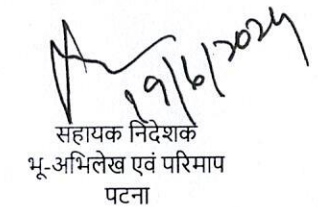 19/6/2024
सहायक निदेशक
भू-अभिलेख एवं परिमाप
पटना